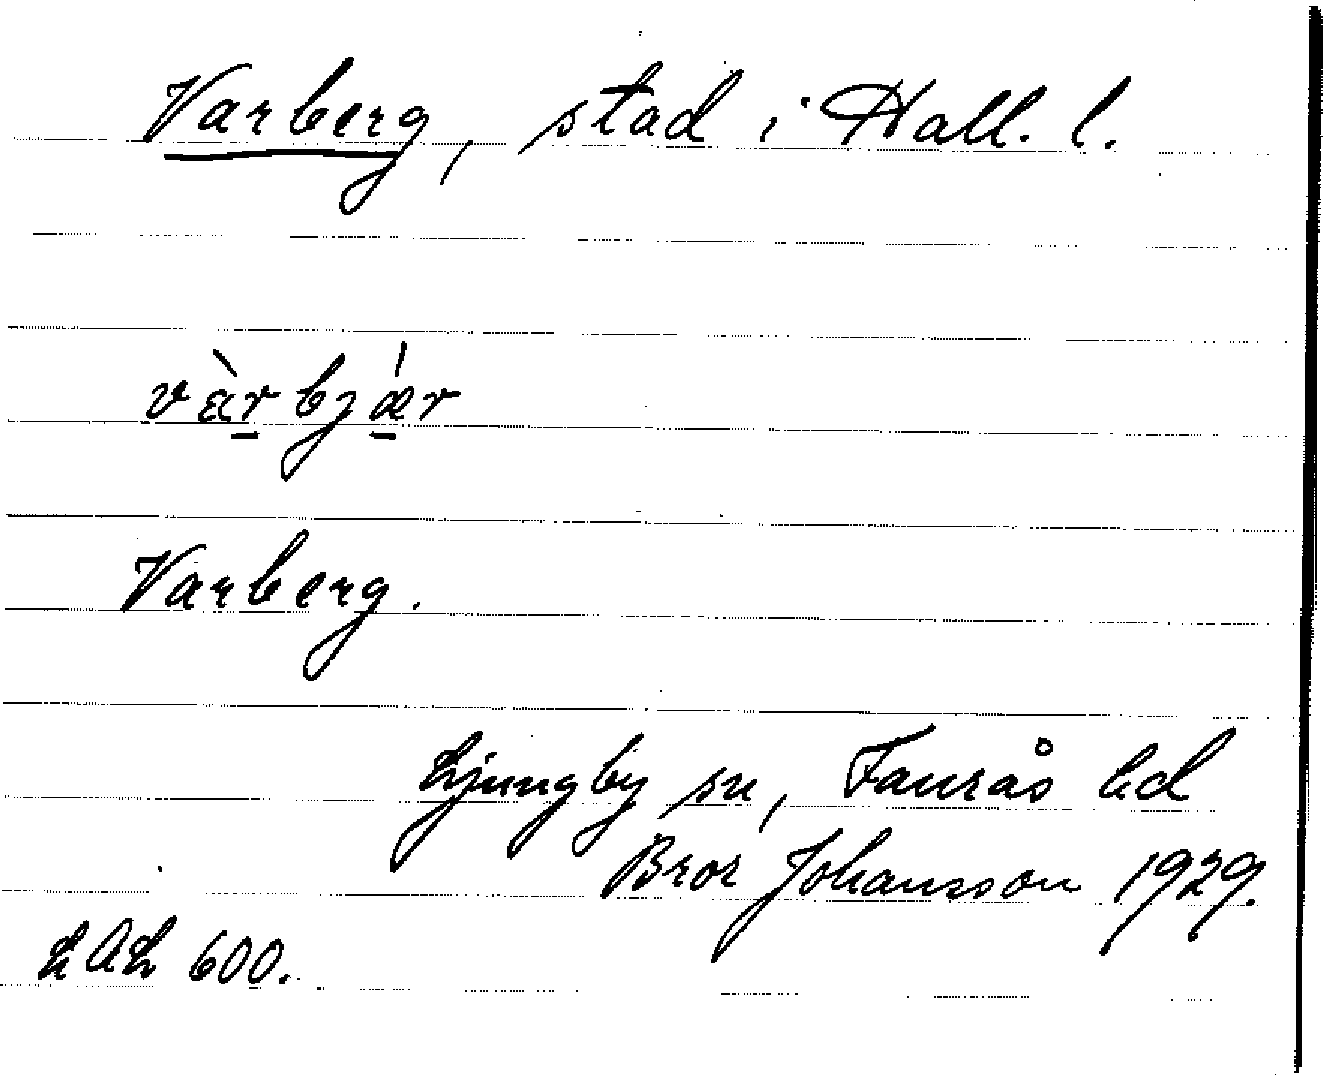 Varberg, stad i Hall. l.
vàrbjǽr
Varberg.
Ljungby sn, Faurås hd
Bror Johansson 1929.
LAL 600.